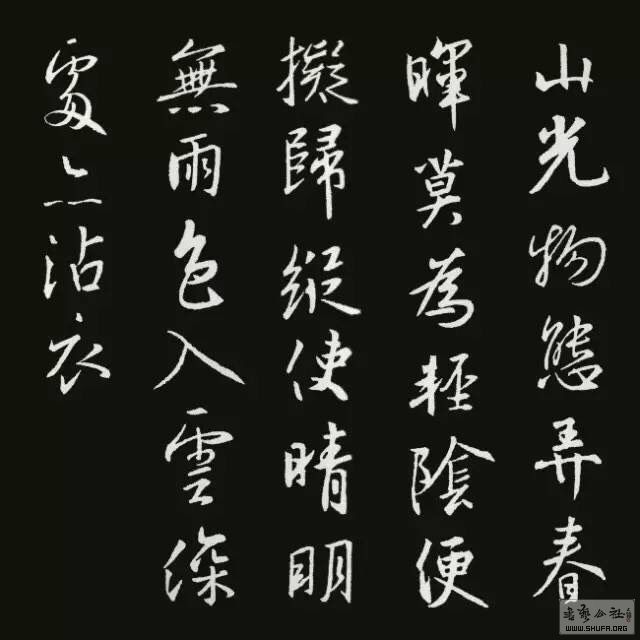 山光物態弄春
暉莫為輕陰便
擬歸縱使晴明
無雨色入雲深
處亦沾衣
公社
WWW.SHUFA.ORG